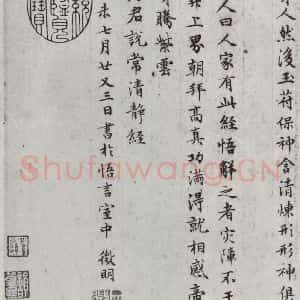 人然後玉符保神金液煉形形神俱
人曰人家有此經悟解之者災障不干
升上界朝拜高真功滿得就相感帝
騰紫雲
君說常清靜經
未七月廿又三日書於悟言室中徵明
Shufawang.CN